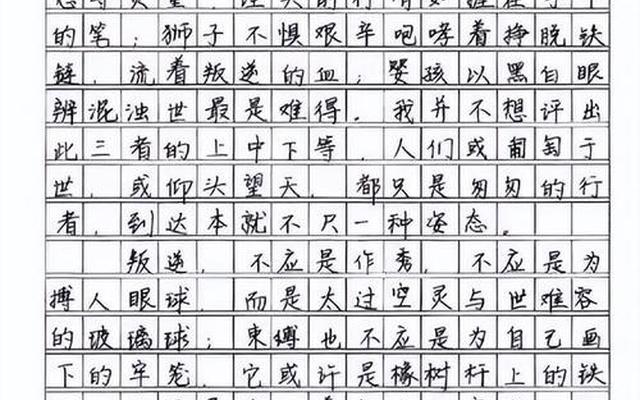 的笔；狮子不惧艰辛咆哮着挣脱铁
链，流着叛逆的血；婴孩以黑白眼
辨混浊世最是难得。我并不想评出
此三者的上中下等，人们或匍匐于
世，或仰头望天，都只是匆匆的行
者，到达本就不只一种姿态。
叛逆，不应是作秀，不应是为
搏人眼球，而是太过空灵与世难容
的玻璃球；束缚也不应是为自己画
下的牢笼，它或许是橡树杆上的铁